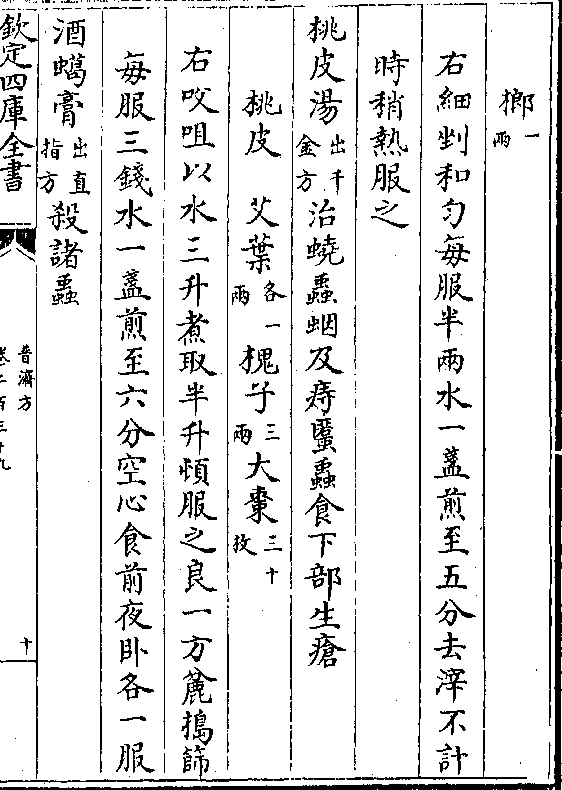 榔一兩
右細剉和勻每服半兩水一盞煎至五分去滓不計
時稍熱服之
桃皮湯出千金方治蟯蟲蛔及痔䘌蟲食下部生瘡
桃皮 艾葉各一兩 槐子三兩 大棗三十枚
右㕮咀以水三升煮取半升頓服之良一方麄搗篩
每服三錢水一盞煎至六分空心食前夜卧各一服
酒蠍膏出直指方殺諸蟲
欽定四庫全書
普濟方
卷二百三十九
十